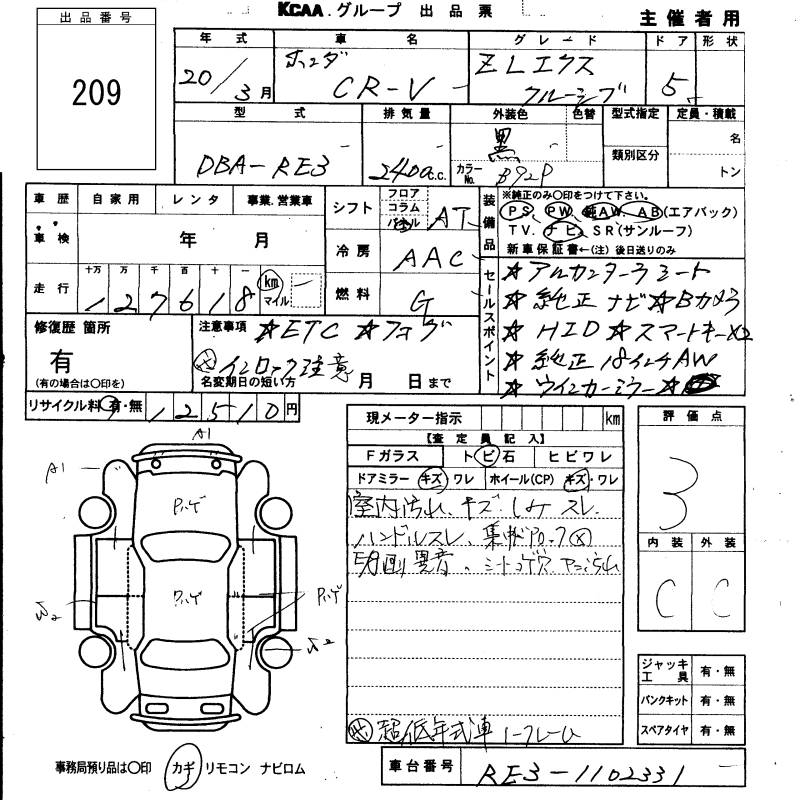 KCAA. グループ 出品票
主催者用
出品番号
209
年式 車名 グレード ドア 形状
20/3月 ホンダ CR-V ZLエクスクルーシブ 5
型式 排気量 外装色 色替 型式指定 定員・積載
類別区分
DBA-RE3 2400c.c. 黒 カラーNo. B92P 名
トン
車歴 自家用 レンタ 事業.営業車
車検 年 月
走行 十万 万 千 百 十 一
127618 km マイル
シフト フロア コラム パネル AT
冷房 AAC
燃料 G
装備品
※純正のみ〇印をつけて下さい。
PS、PW、純AW、AB(エアバック)
TV、ナビ、SR(サンルーフ)
新車保証書←(注)後日送りのみ
セールスポイント
★アルカンターラシート
★純正ナビ★Bカメラ
★HID★スマートキーX2
★純正18インチAW
★ウインカーミラー★
修復歴 箇所
有
(有の場合は〇印を)
注意事項 ★ETC ★フォグ
インロック注意
名変期日の短い方 月 日まで
リサイクル料 有・無 12510円
現メーター指示 km
【査定員記入】
Fガラス トビ石 ヒビワレ
ドアミラー キズ・ワレ ホイール(CP) キズ・ワレ
室内汚れ、キズ、シケ スレ
ハンドルスレ、
異音、シートコゲ穴
超低年式車
評価点
3
内装 外装
C C
ジャッキ工具 有・無
パンクキット 有・無
スペアタイヤ 有・無
A1
A1
W2
事務局預り品は〇印 カギ リモコン ナビロム
車台番号 RE3-1102331